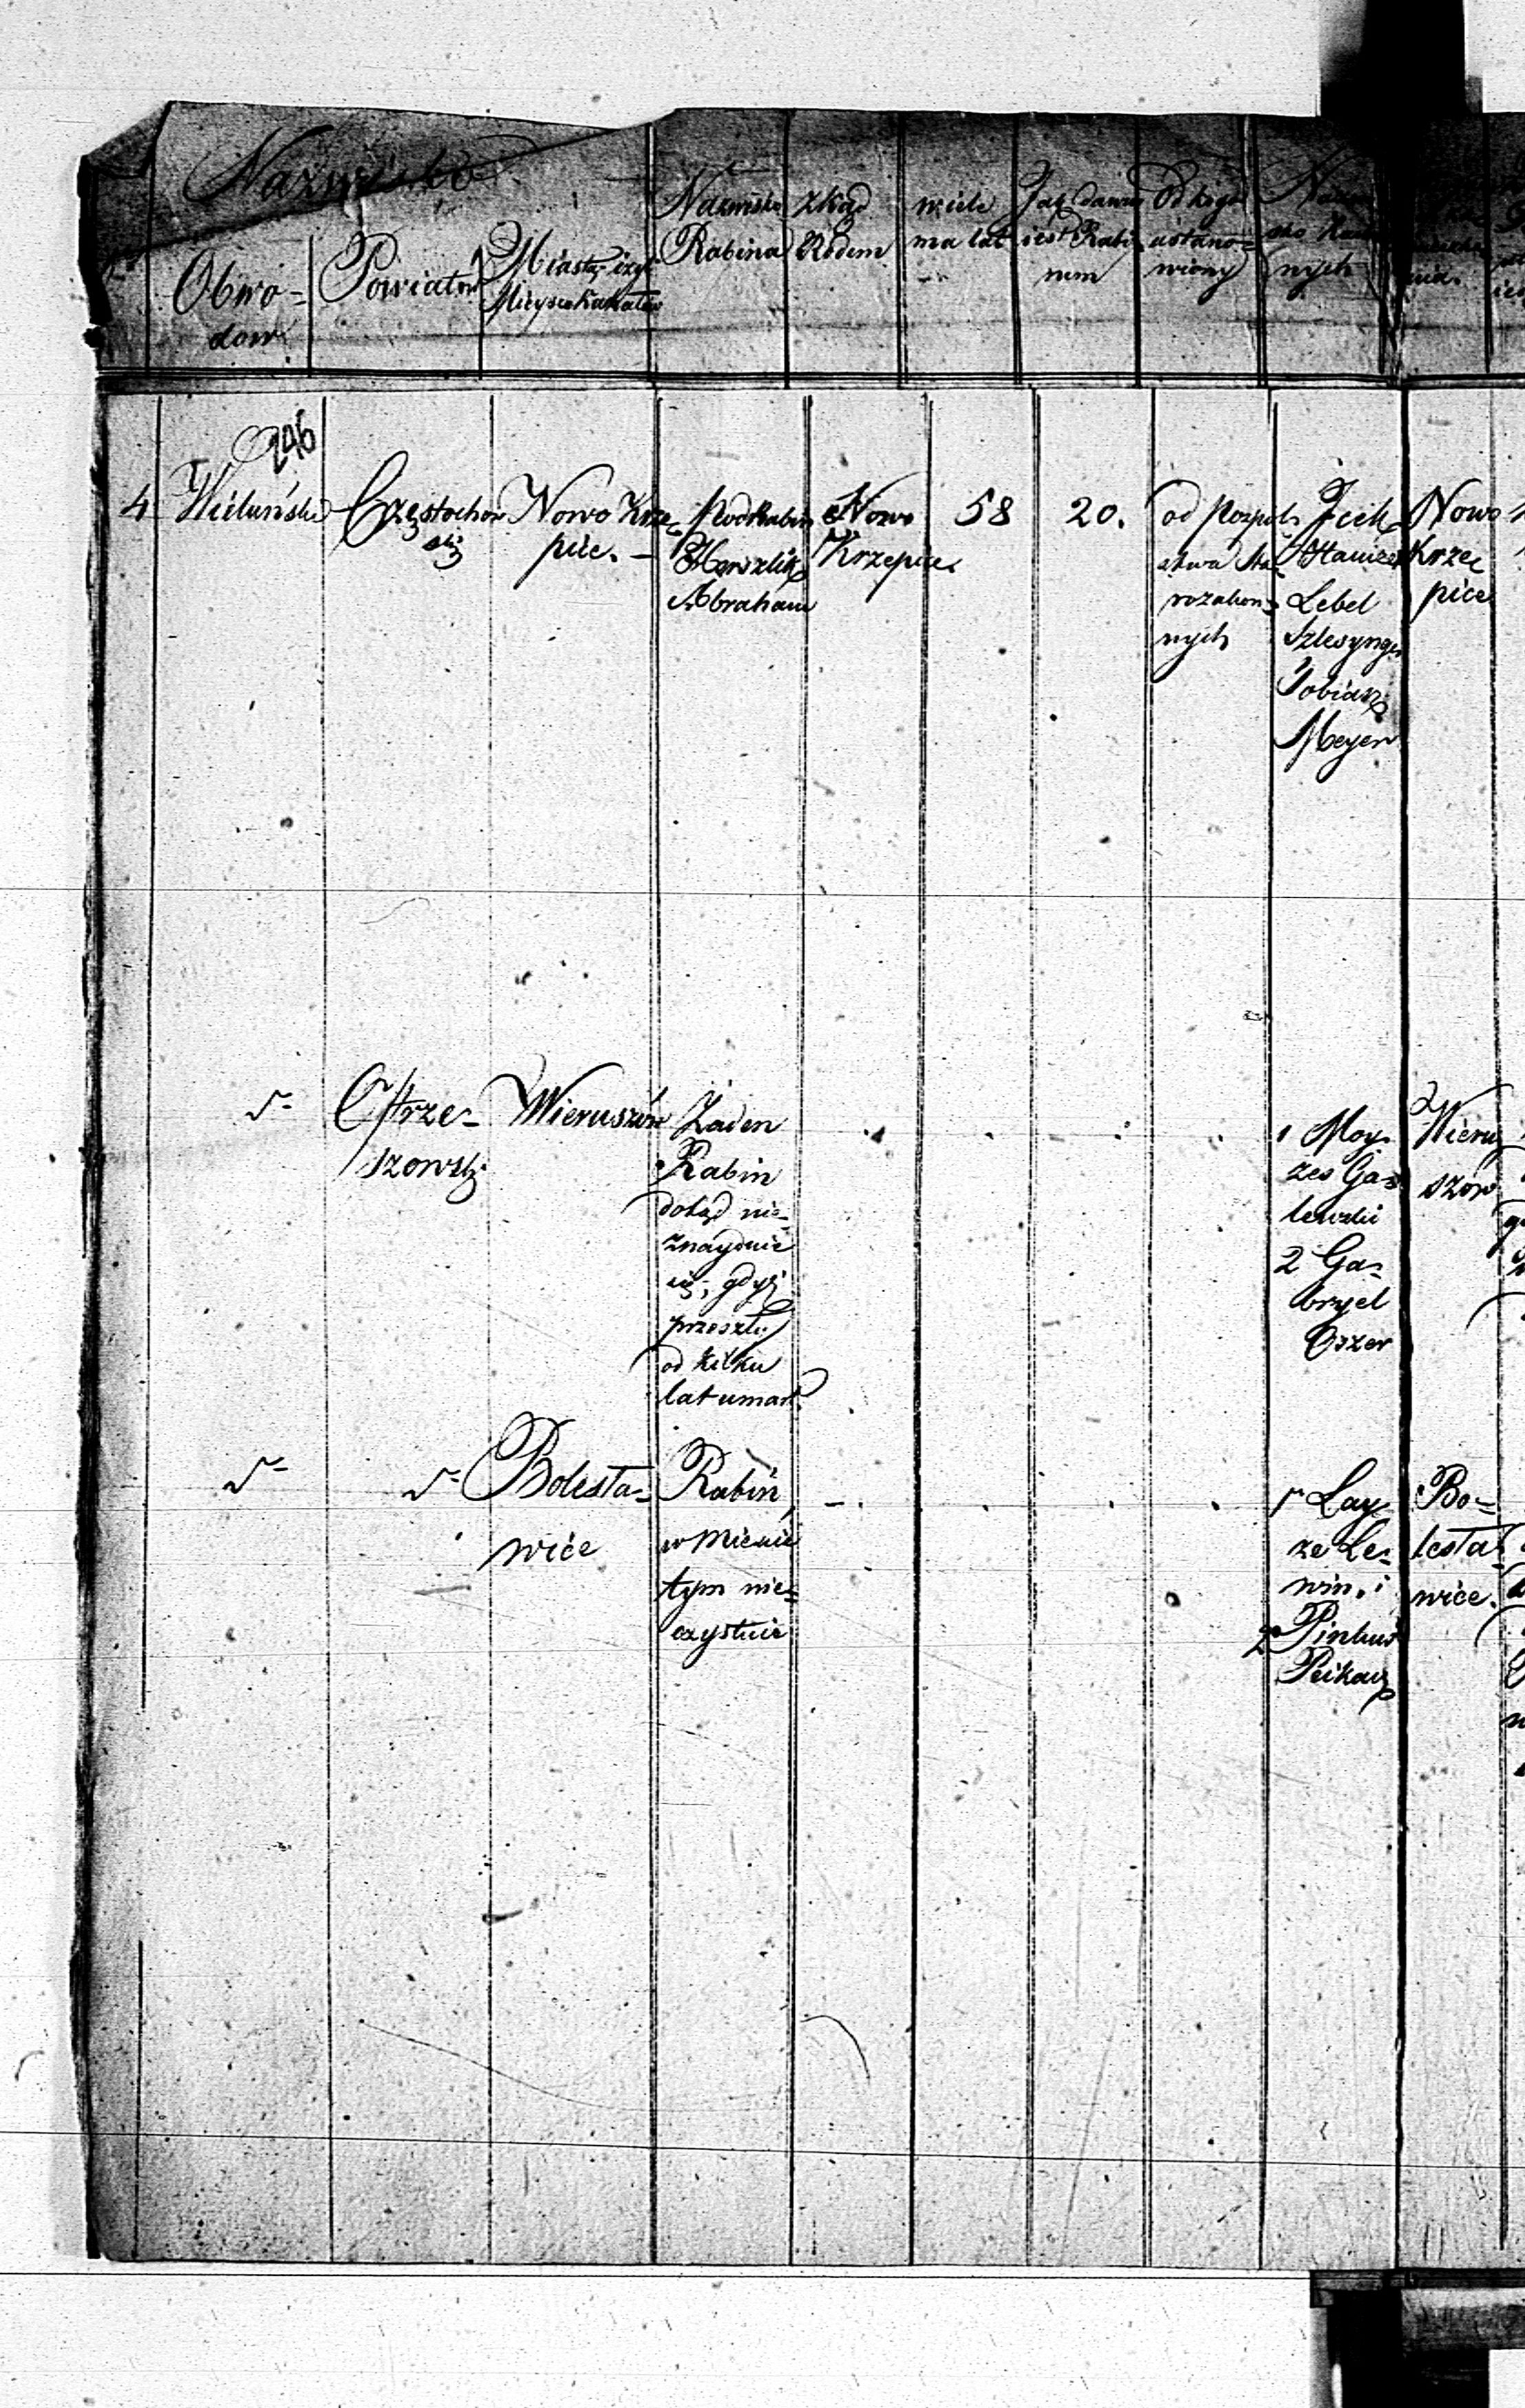 Nazwisko
Obwo-
dow
Powiatow
Miasta czyli
Mieysca Kahałów
Nazwisko
Rabina
zkąd
Rodem
wiele
ma lat
Jak dawno
iest Rabi-
nem
Od kogo
ustano-
wiony
nych
246
4
Wieluński
Częstochow
ski
Nowo Krze-
pice. —
Podrabin
Herszlik
Abraham
Nowo
Krzepice.
58
20.
od Pospól-
stwa Sta-
rozakon-
nych
Icik
Lebel
Szlesynger
Tobiasz
Meyer
Nowo
Krze
pice
d°
Ostrze-
szowski
Wieruszów
Żaden
Rabin
dotąd nie-
znayduie
się, gdyż
przeszły
od kilku
lat umarł.
1 Moy-
zes Ga-
2 Ga-
bryel
Oszer
Wieru
szow
d°
d°
Bolesła-
wice
Rabin
w Mieście
tym nie-
exystuie
1 Lay-
ze Le-
win, i
2 Pinkus
Bo-
lesła-
wice.